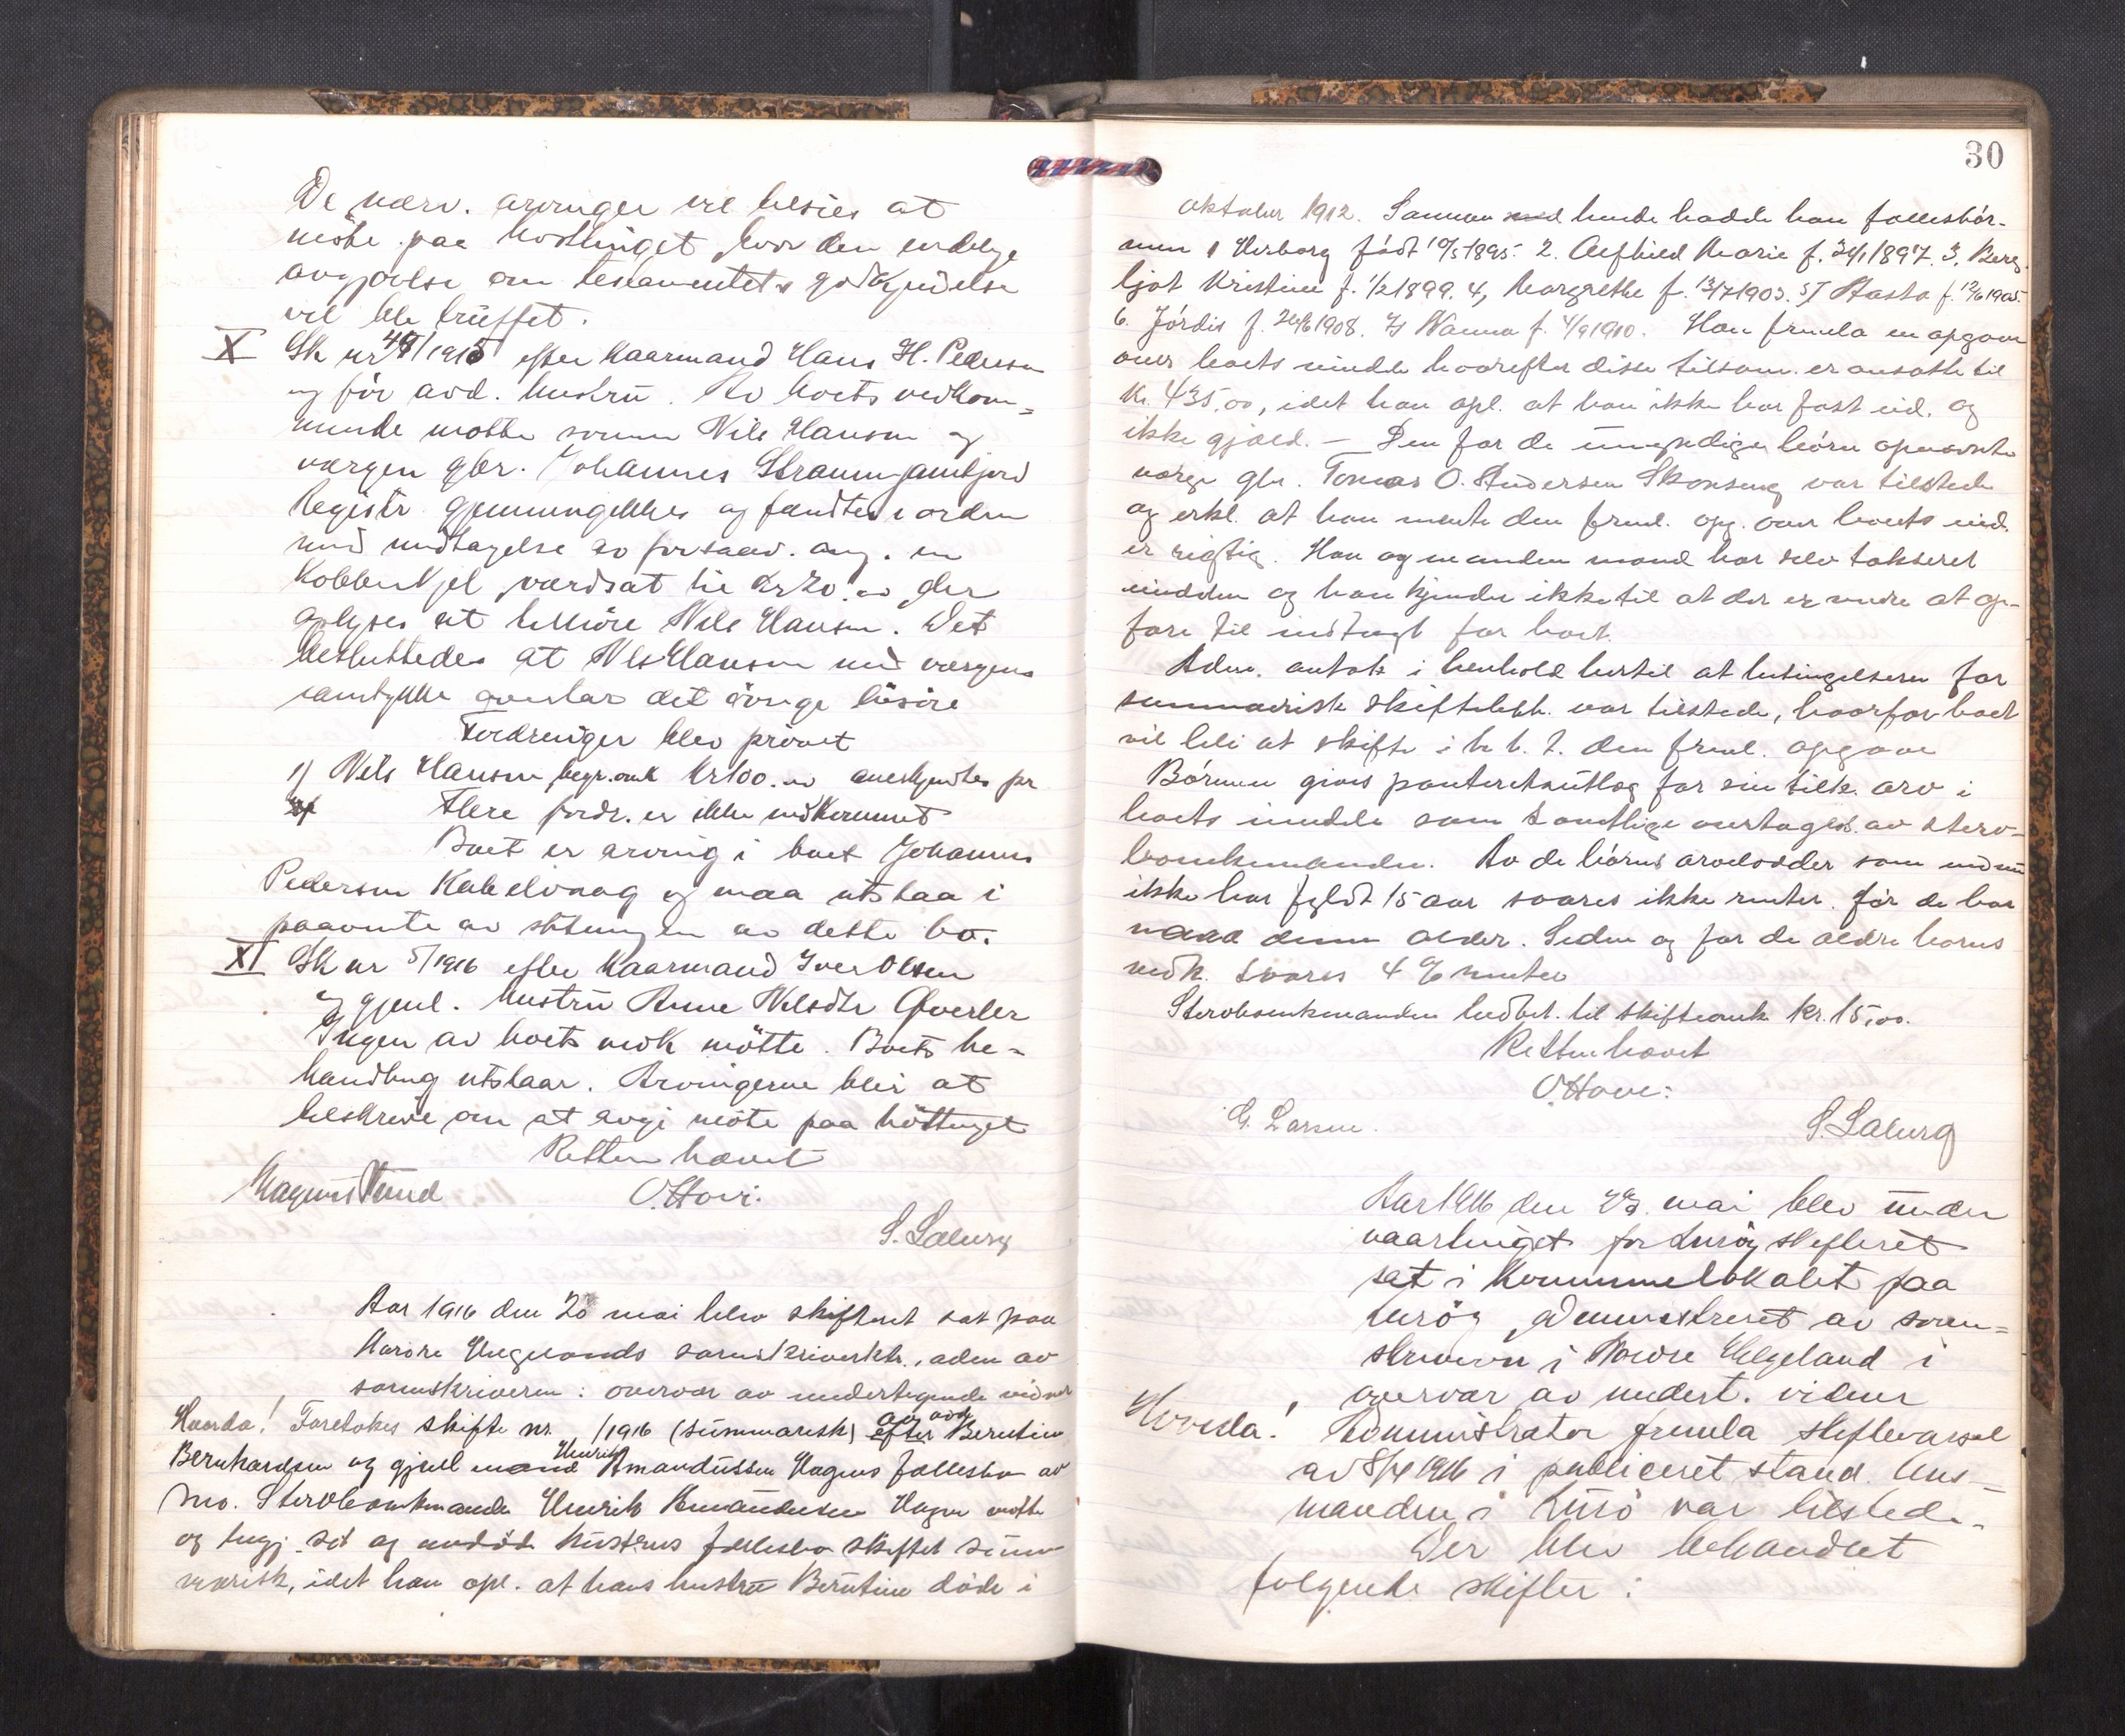 De nærv. arvinger vil tilsies at
möte paa höstthinget hvor den endelige
avgjörelse om testamentets godkjendelse
vil bli truffet.
X Sk nr 48/1915 efter kaarmand Hans H. Pedersen
og för avd. hustru. Av boets vedkom=
mende mötte sönnen Nils Hansen og
værgen gbr. Johannes Straumfjord
Registr. gjennemgikkes og fandtes i orden
med undtagelse av forsaav. ang. en
Kobberkjel værdsat til kr 20.00 der
oplyses at tilhöre Nils Hansen. Det
besluttedes at Nils Hansen med værgens
samtykke overtar det övrige lösöre
Fordringer blev prövet
1) Nils Hansen, begr. omk kr 100.00 anerkjendtes pr
Flere fordr. er ikke indkommet
Boet er arving i boet Johannes
Pedersen Kabelvaag og maa utstaa i
paavente av slutningen av dette bo.
XI Sk nr 5/1916 efter kaarmand Iver Olsen
og gjenl. hustru Anne Nilsdtr
Ingen av boets vedk mötte. Boets be=
handling utstaar. Arvingerne blir at
tilskrive om at avgi möte paa hösttinget
Retten hævet
Magnus O. Hovi.
S. Salurg

Aar 1916 den 20 mai blev skifteret sat paa
Nordre Helgelands sorenskriverktr., adm av
sorenskriveren i overvær av undertegnede vidner
Hvorda! Foretokes skifte nr. /1916 (summarisk) efter av avd Berntine
Bernhardsen og gjenl mand Henrik Amandussen Hagens fællesbo av
Mo. Sterkbomkmanden Henrik Amandussen Hagen mötte
og begj. sit og avdöde hustrus fællesbo skiftet sum
marisk, idet han opl. at hans hustru Berntine döde i

30
oktober 1912. Sammen med hende hadde han fællesbör-
nene 1 Herborg födt 10/5 1895. 2. Alfhild Marie f. 24/1 1897. 3, Berg-
ljot Kristine f. 1/2 1899. 4, Margrethe f. 13/7 1903. 5) Aasta f. 12/6 1905.
6. Jórdis f. 26/6 1908. 7) Nanna f. 4/9 1910. Han fremla en opgave
over boets midde hvorefter disse tilsam. er ansatte til
kr. 435,00, idet han opl. at han ikke har fast eid. og
ikke gjæld. — Den for de umyndige börn opnævnte
værge gbr. Tomas O. Andersen Skonseng var tilstede
og erkl. at han mente den freml. opg. over boets eied.
er rigtig. Han og en anden mand har selv takseret
midden og han kjender ikke til at der er mere at op-
före til indtægt for boet.
Adm. antok i henhold hertil at betingelsene for
summarisk skiftebeh. var tilstede, hvorfor boet
vil bli at skifte i h. t. den freml. opgave
Börnene gives panteretsutlæg for sin tilk. arv i
boets midde som samtlige overtages av sterv-
bomkmanden. Av de börns arvelodder som endnu
ikke har fyldt 15 aar svares ikke renter. för de har
naad denne alder. Siden og for de ældre börns
vedk. svares 4 % renter
Stervbomkmanden indbet. til skifteomk kr. 15,00.
Retten hævet
O. Hovi:
G. Larsen. S. Salurg

Aar 1916 den 23. mai blev under
vaartinget for Luröy skifteret
sat i Kommunelokalet paa
Luröy, administreret av soren=
skriveren i Nordre Helgeland i
overvær av undert. vidner
Hvorda! Administrator fremla skiftevarsel
av 8/4 1916 i publiceret stand. Lens-
manden i Lurö var tilstede.
Der blev behandlet
følgende skifter: